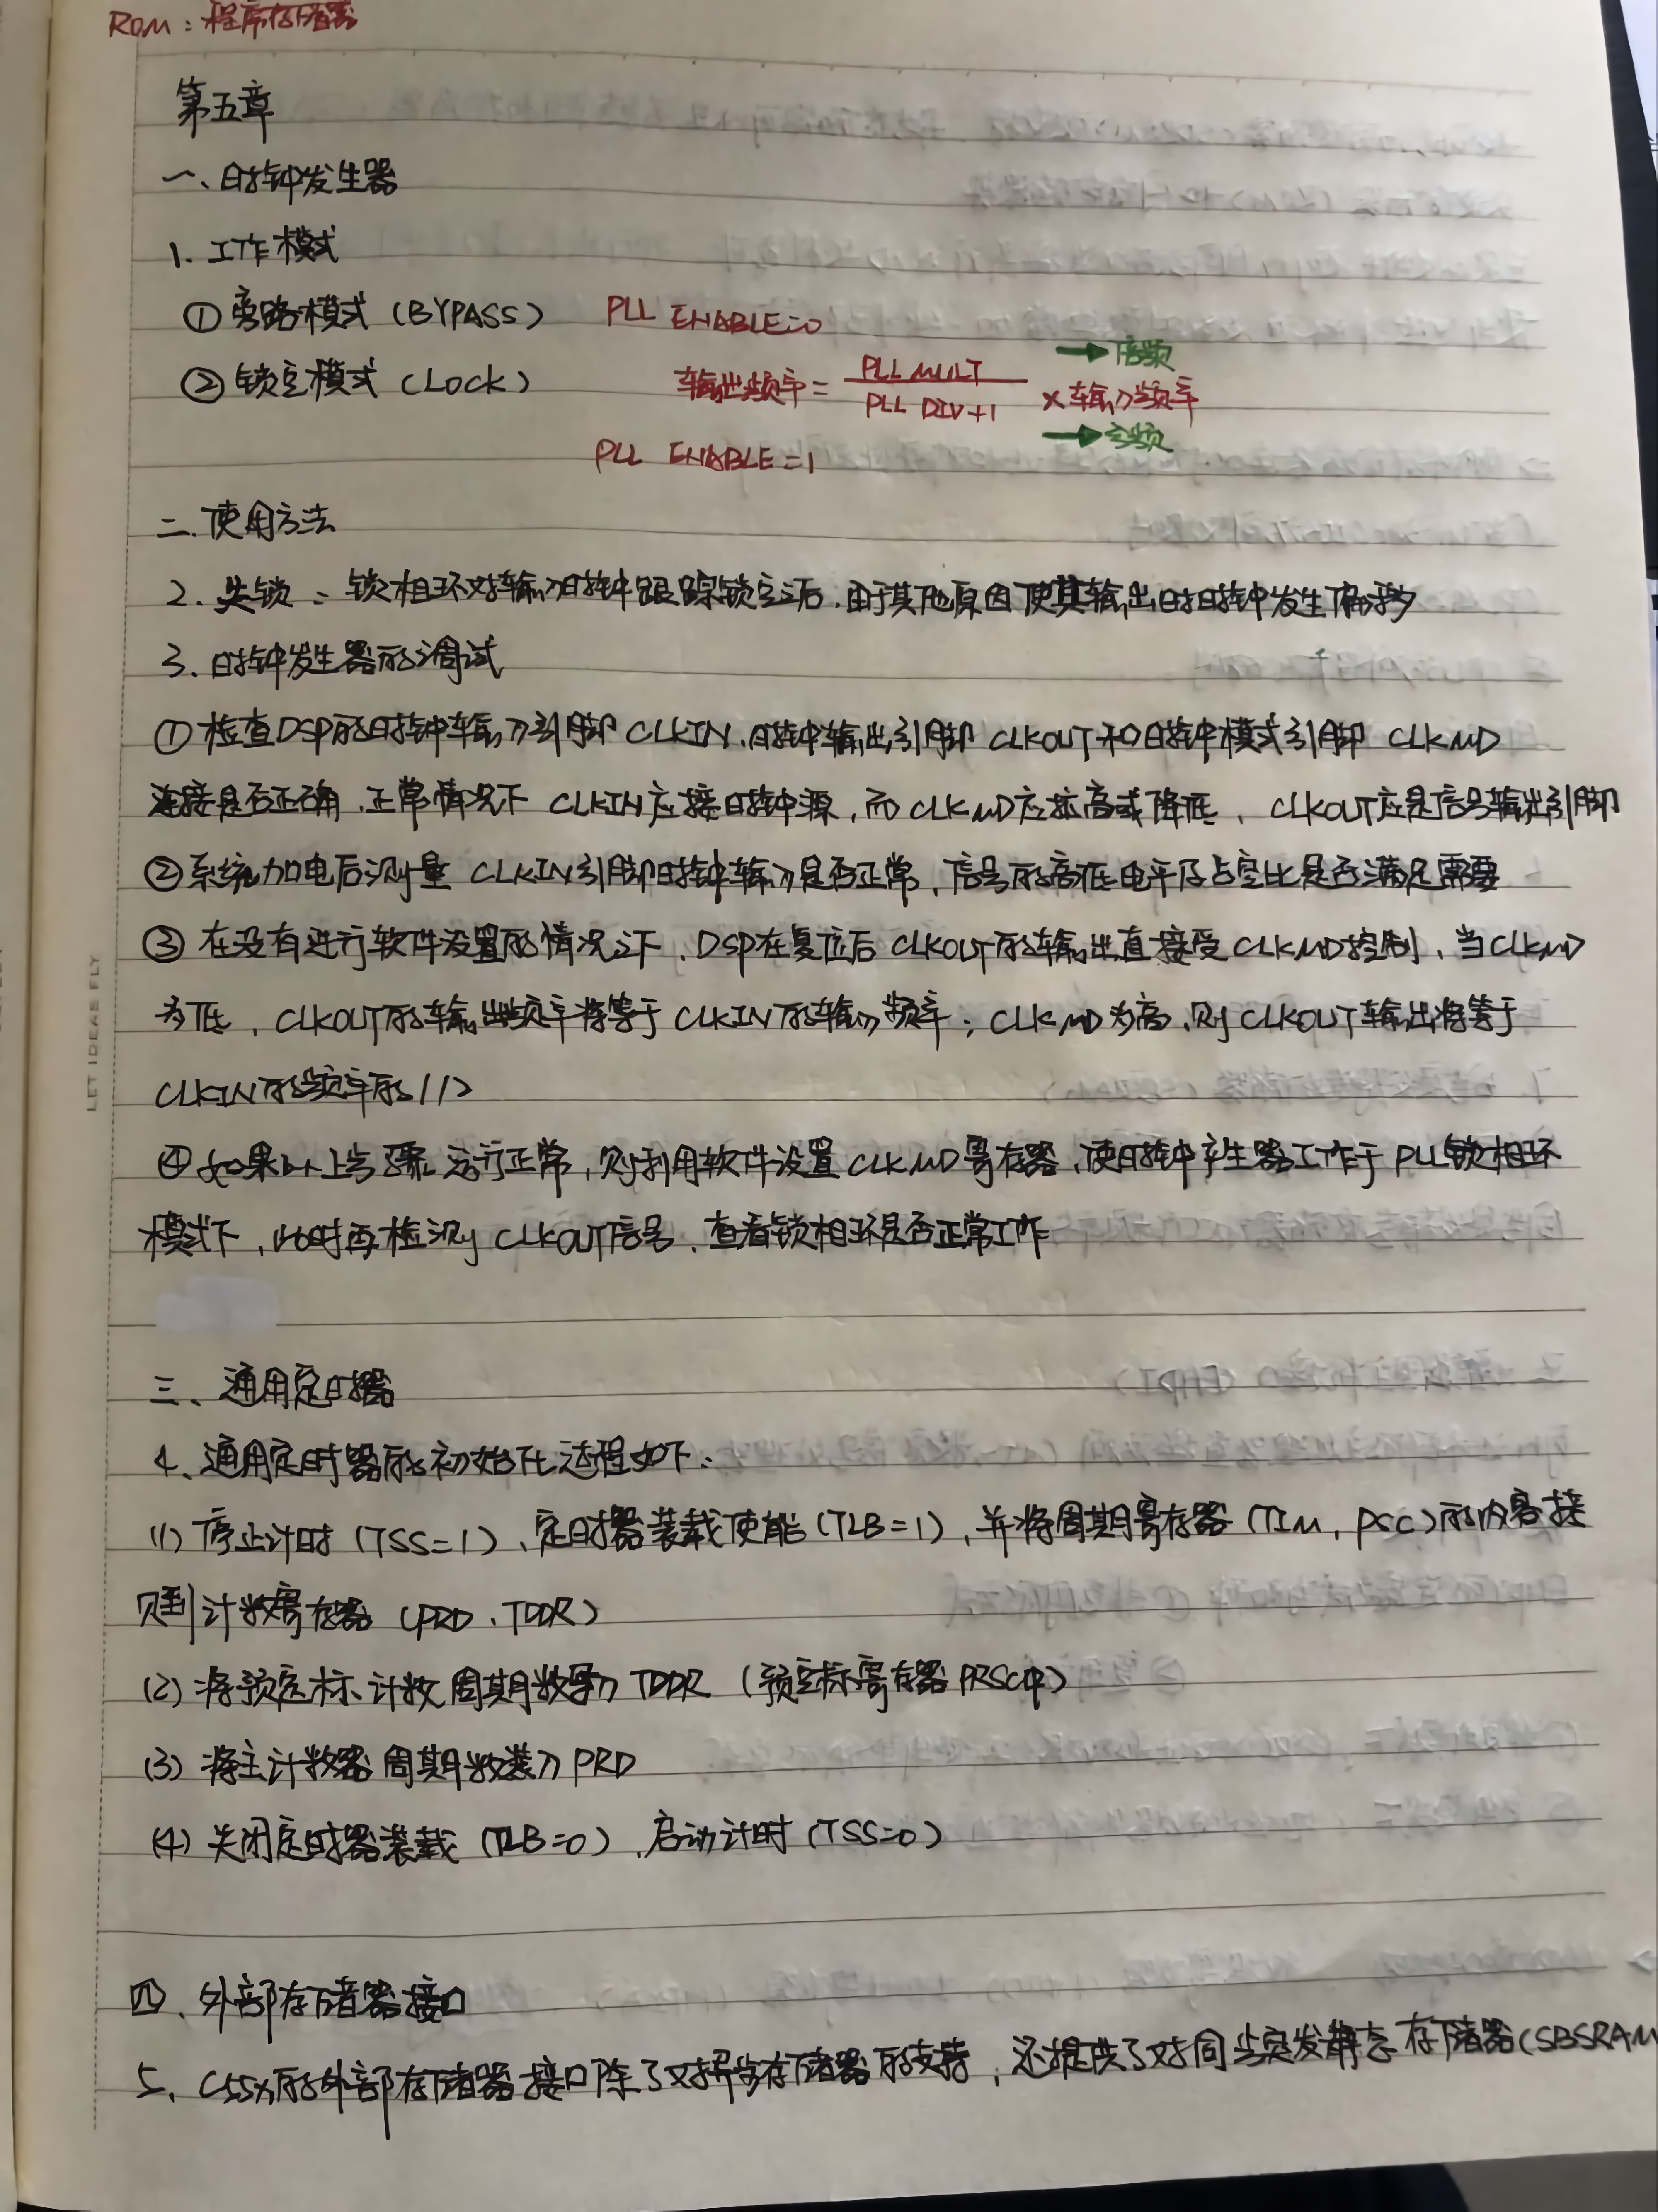 ROM：程序存储器
第五章
一、时钟发生器
1. 工作模式
① 旁路模式（BYPASS） PLL ENABLE=0
② 锁定模式（LOCK） 输出频率= PLL MULT / PLL DIV+1 × 输入频率
→倍频
→分频
PLL ENABLE=1
二.使用方法
2. 失锁：锁相环对输入时钟跟踪锁定之后.由于其他原因使其输出时时钟发生偏移
3. 时钟发生器的调试
① 检查DSP的时钟输入引脚 CLKIN、时钟输出引脚 CLKOUT和时钟模式引脚 CLKMD
连接是否正确.正常情况下 CLKIN应接时钟源，而CLKMD应拉高或降低、CLKOUT应是信号输出引脚
② 系统加电后测量 CLKIN引脚时钟输入是否正常，信号的高低电平及占空比是否满足需要
③ 在没有进行软件设置的情况之下、DSP在复位后 CLKOUT的输出直接受CLKMD控制、当CLKMD
为低，CLKOUT的输出频率将等于CLKIN的输入频率；CLKMD为高、则CLKOUT输出将等于
CLKIN的频率的1/2
④ 如果以上步骤运行正常，则利用软件设置CLKMD寄存器、使时钟产生器工作于PLL锁相环
模式下，此时再检测CLKOUT信号、查看锁相环是否正常工作
三、通用定时器
4、通用定时器的初始化过程如下：
(1) 停止计时（TSS=1）、定时器装载使能（TLB=1）、并将周期寄存器（TIM，PSC）的内容接
则到计数寄存器（PRD、TDDR）
(2) 将预定标计数周期数写入TDDR（预定标寄存器PRSC中）
(3) 将主计数器周期数装入PRD
(4) 关闭定时器装载（TLB=0）、启动计时（TSS=0）
四、外部存储器接口
5、C55x的外部存储器接口除了对异步存储器的支持，还提供了对同步突发静态存储器（SBSRAM
LET IDEAS FLY